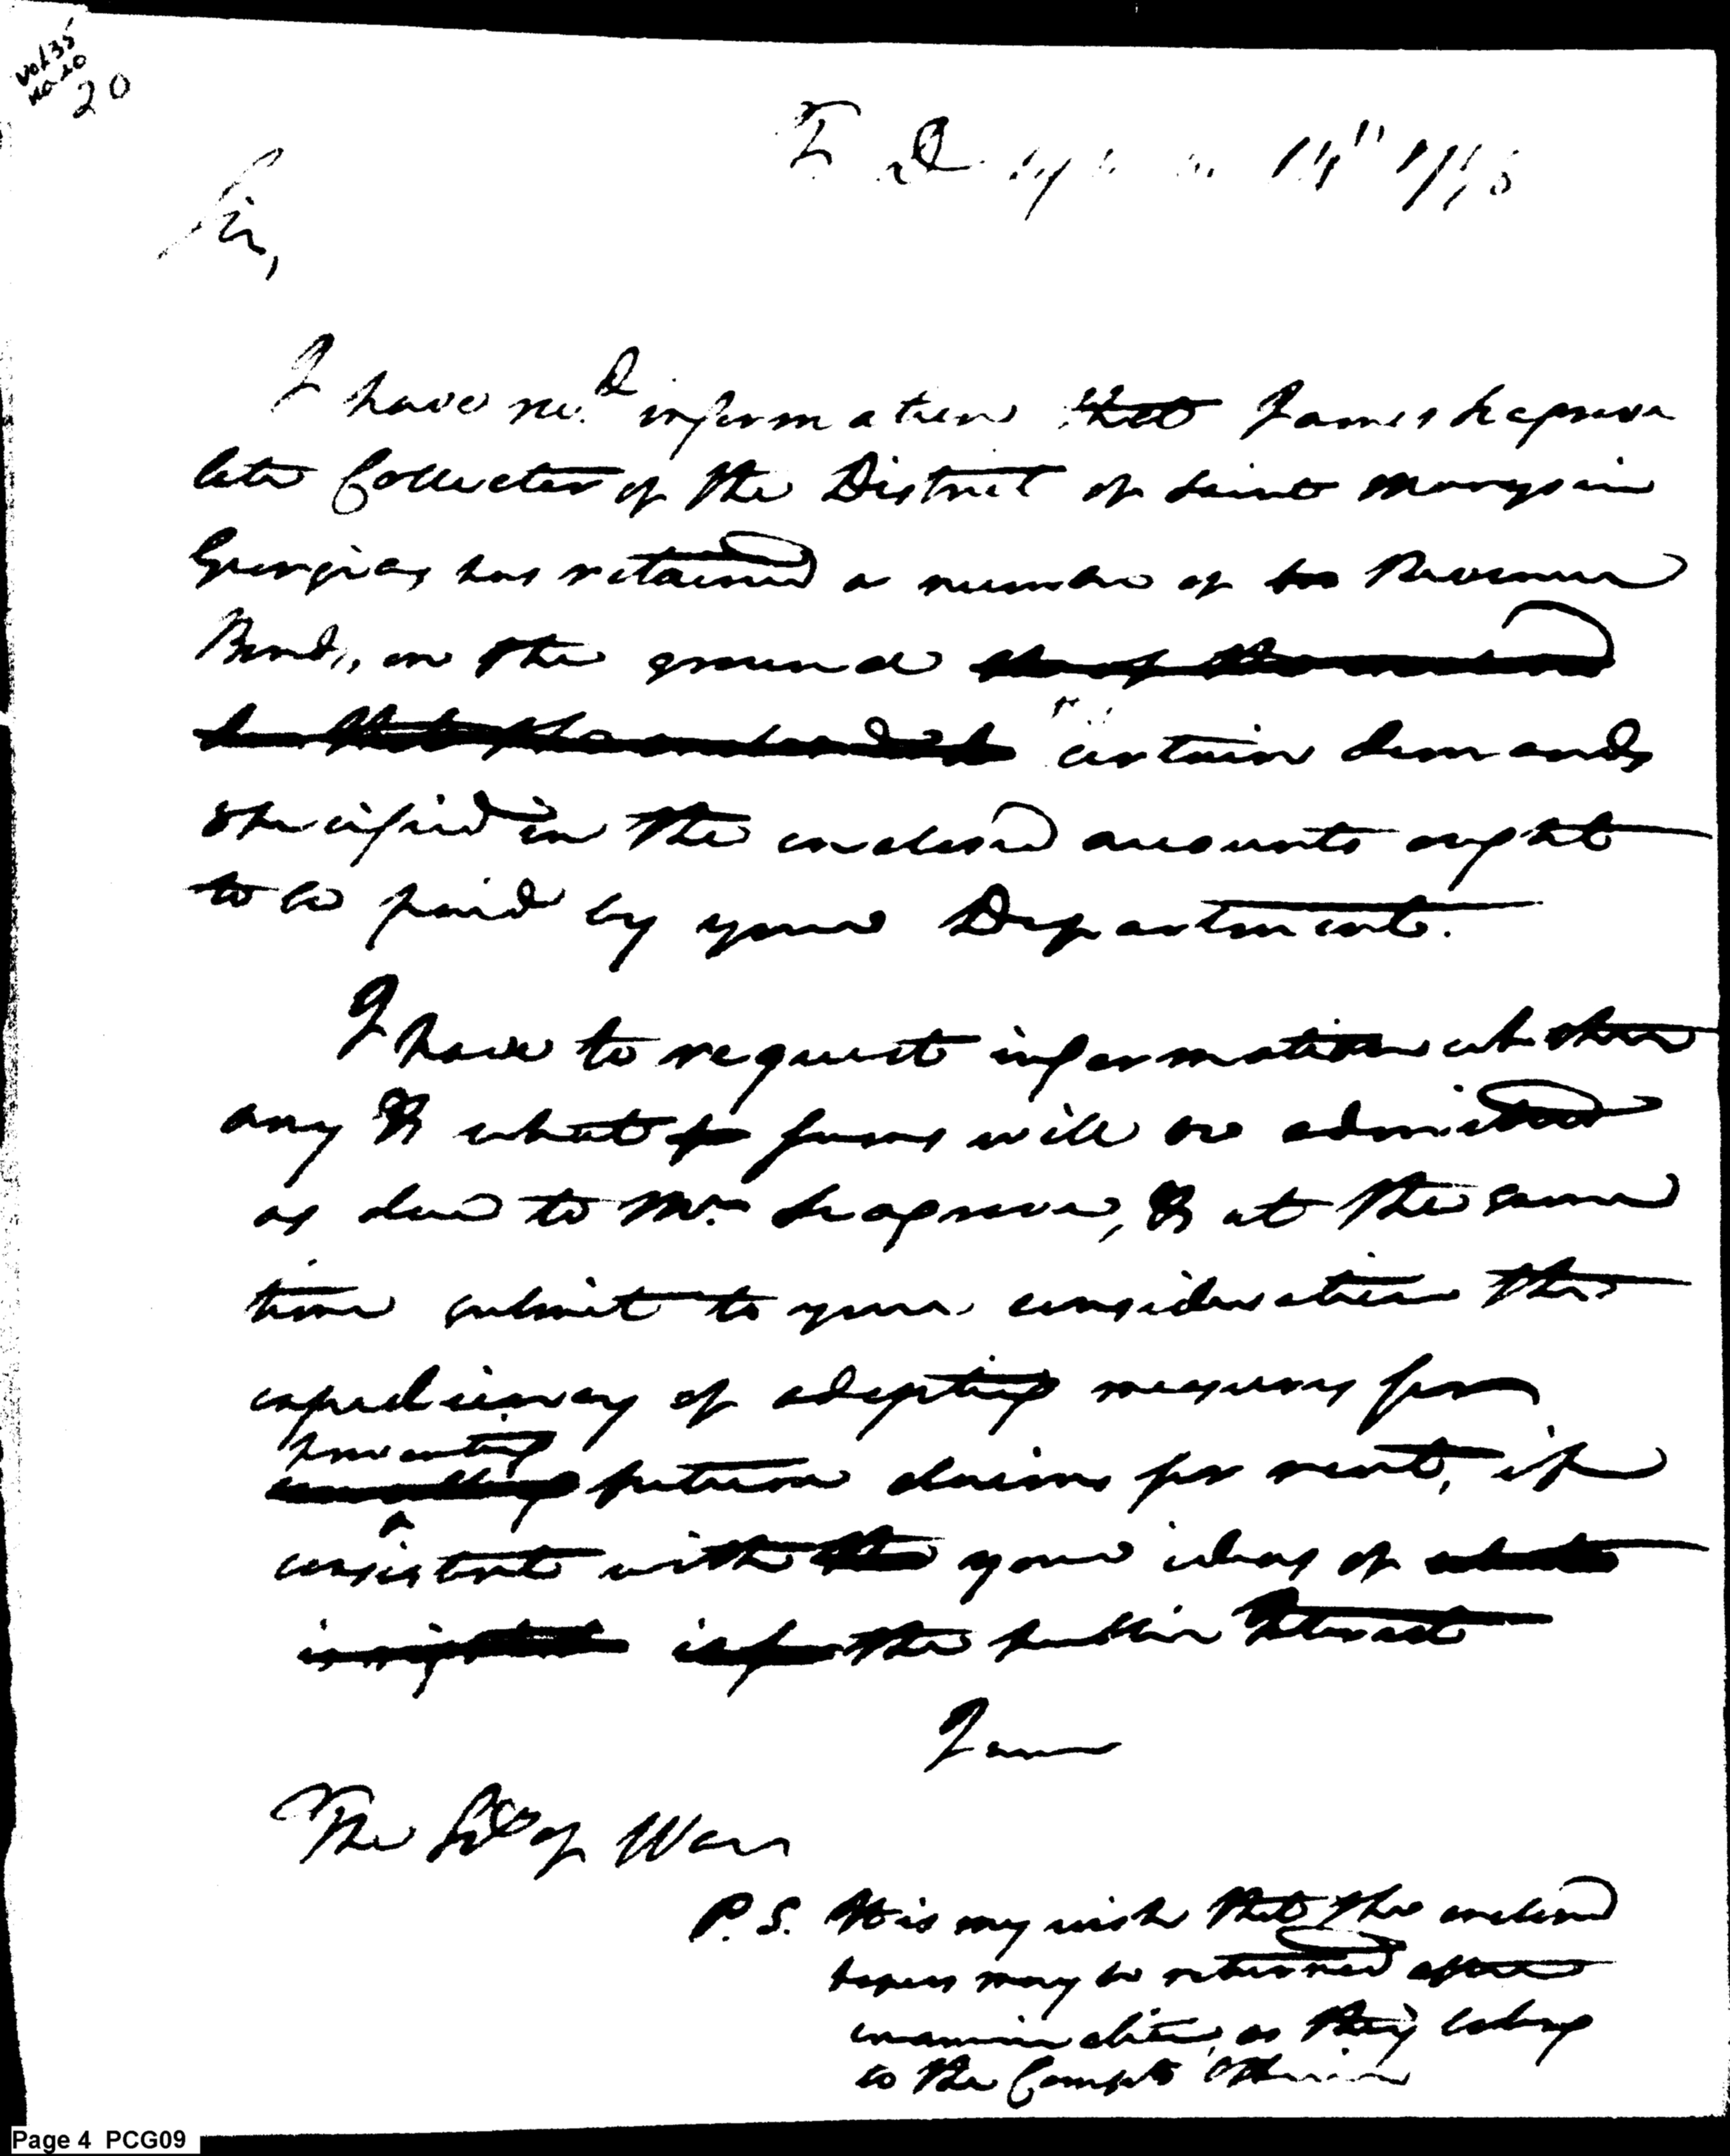 Vol 35
No 20
20
T. D. 
Sir,
I have recd. information that James Seagrove
late Collector of the District of Saint Marys in
Georgia, has retained a number of his Revenue
Bonds, on the ground
certain demands
specified in the enclosed accounts ought
to be paid by your Department.
I have to request information whether
any & what sums will be admitted
as due to Mr. Seagrove, & at the same
time submit to your consideration the
expediency of adopting measures for
preventing
future claims for rent, if
consistent with the your ideas of
the public Interest
I am
The Secy of War
P.S. It is my wish that the enclosed
papers may be returned after
examination, as they belong
to the Compts Office